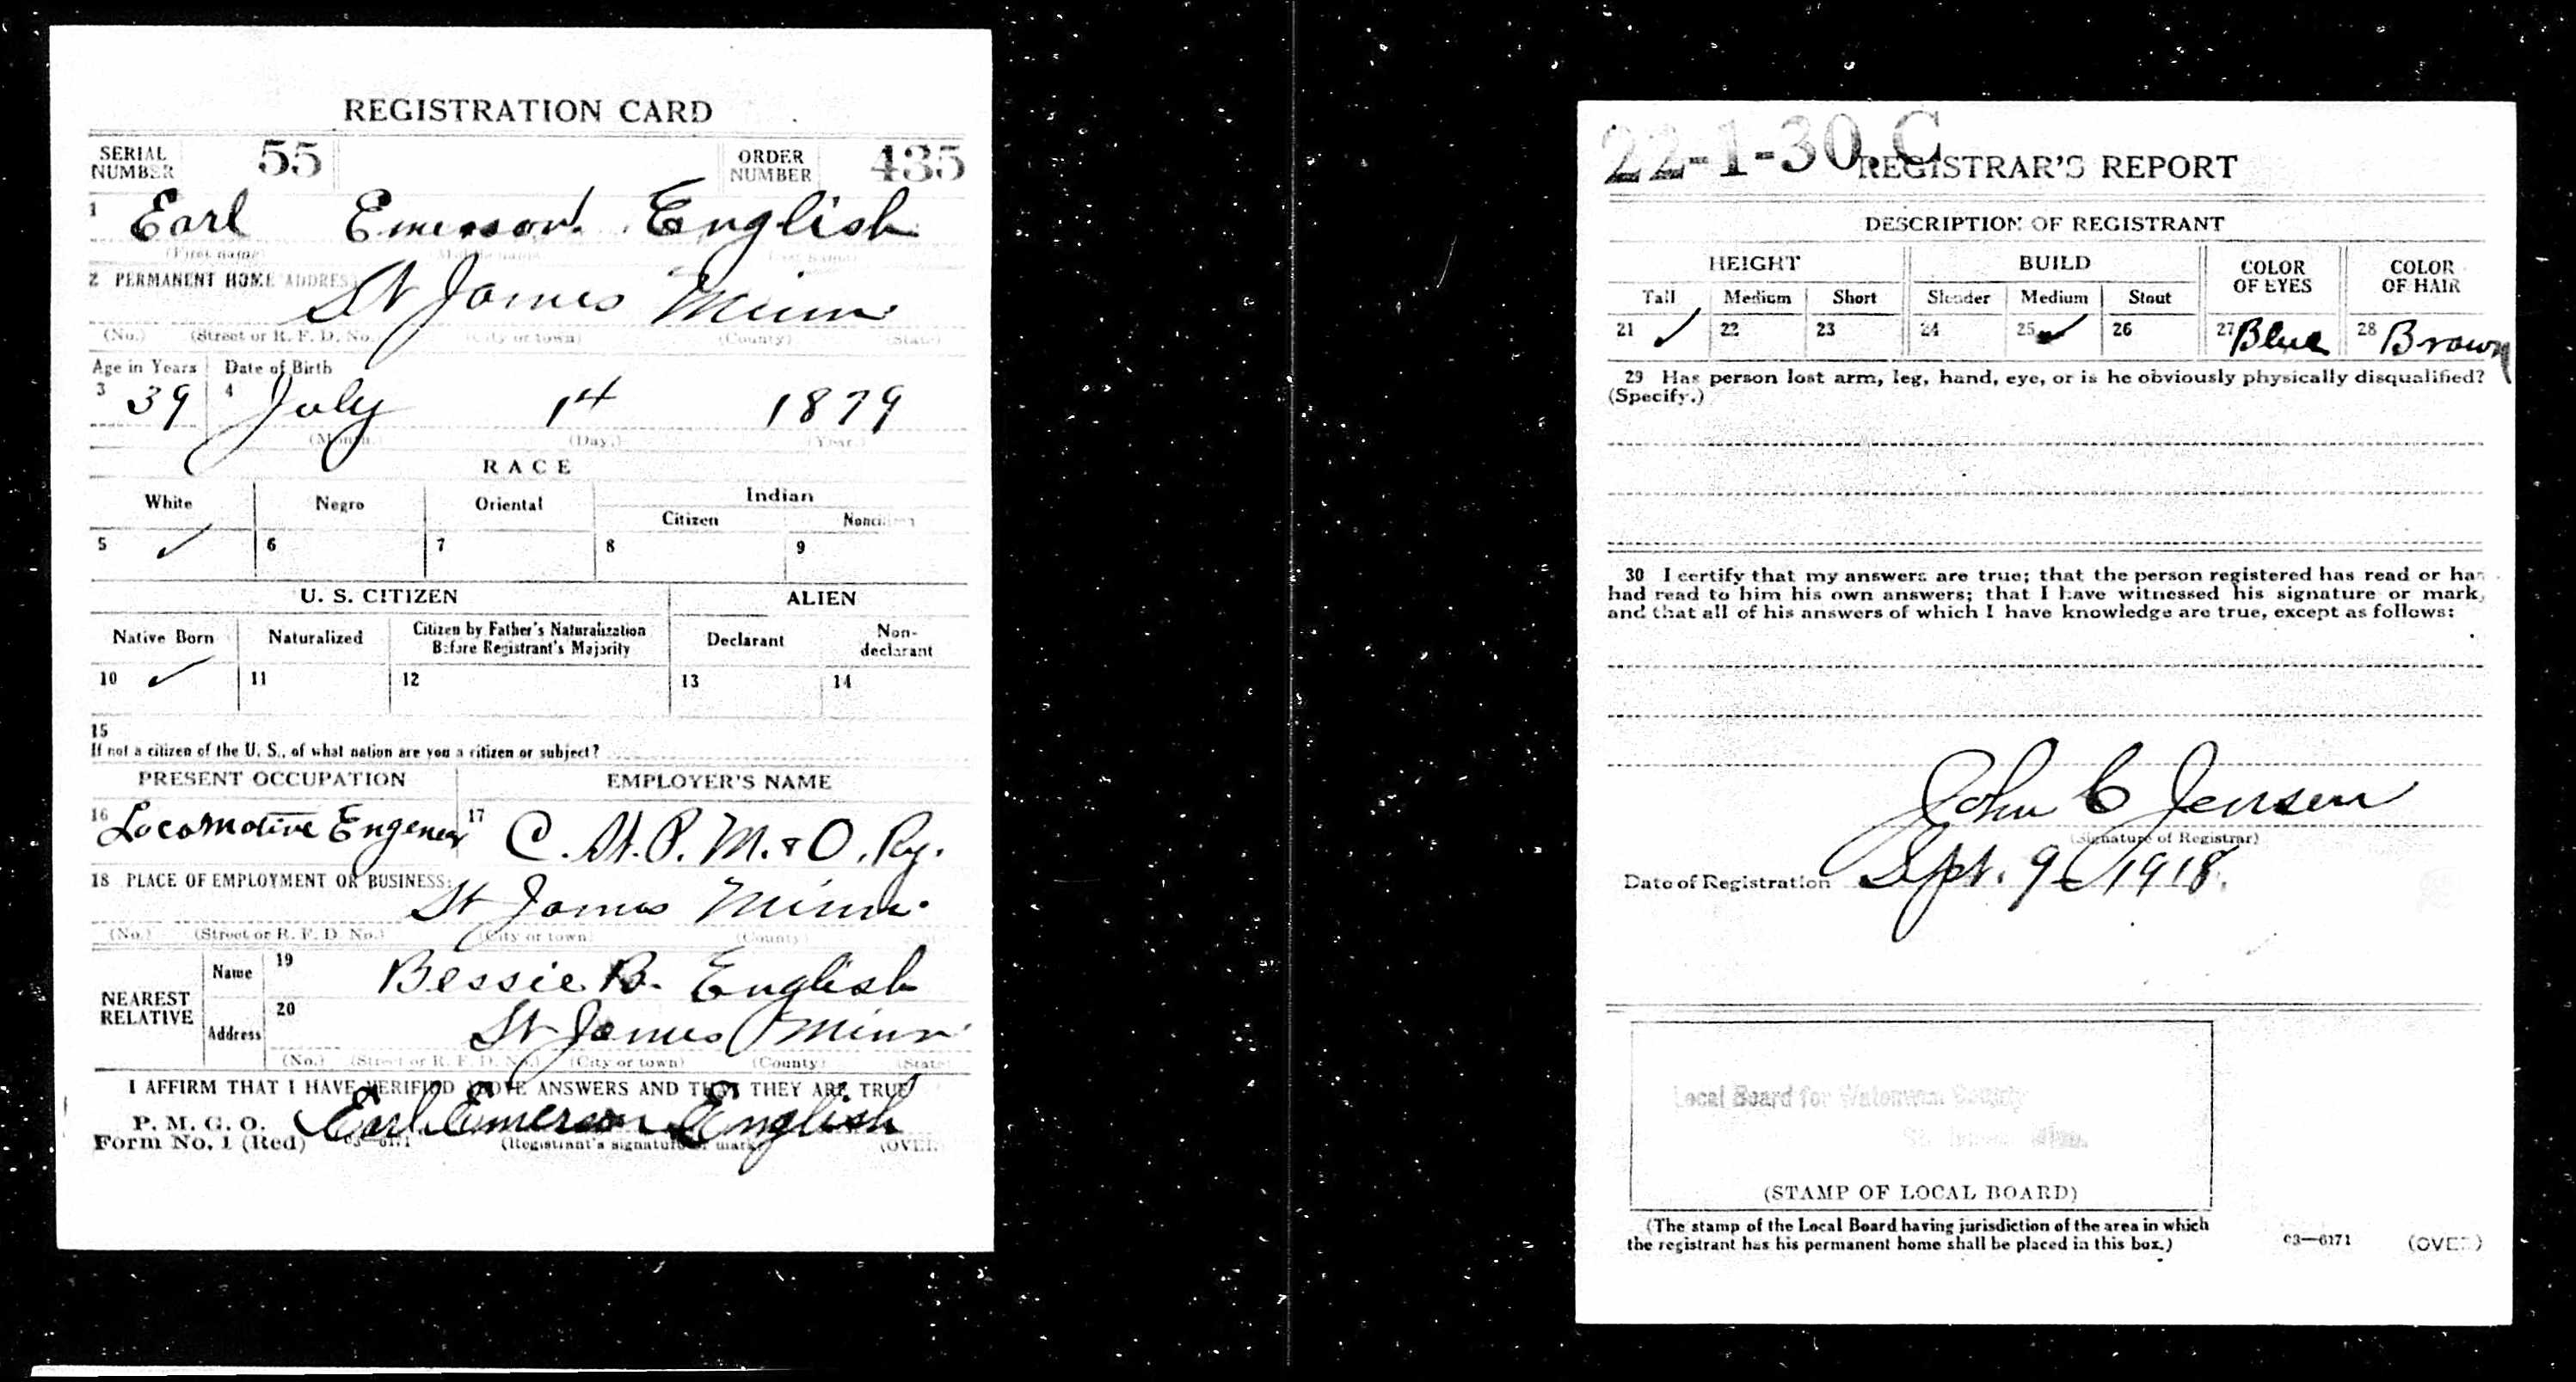 REGISTRATION CARD
SERIAL NUMBER 55 ORDER NUMBER 435
1 Earl Emerson English
(First name) (Last name)
2 PERMANENT HOME ADDRESS St James Minn
(No.) (Street or R. F. D. No.) (City or town) (County) (State)
Age in Years Date of Birth
3 39 4 July 14 1879
(Month.) (Day.) (Year.)
RACE
White Negro Oriental Indian
Citizen Noncitizen
5 ✓ 6 7 8 9
U. S. CITIZEN ALIEN
Native Born Naturalized Citizen by Father's Naturalization Before Registrant's Majority Declarant Non-declarant
10 ✓ 11 12 13 14
15
If not a citizen of the U. S., of what nation are you a citizen or subject?
PRESENT OCCUPATION EMPLOYER'S NAME
16 Locomotive Engener 17 C. St. P. M. & O. Ry.
18 PLACE OF EMPLOYMENT OR BUSINESS: St James Minn.
(No.) (Street or R. F. D. No.) (City or town) (County)
NEAREST RELATIVE Name 19 Bessie B. English
Address 20 St James Minn
(No.) (Street or R. F. D. No.) (City or town) (County) (State)
I AFFIRM THAT I HAVE VERIFIED ABOVE ANSWERS AND THAT THEY ARE TRUE
P. M. G. O. Earl Emerson English
Form No. 1 (Red) 03-6171 (Registrant's signature or mark) (OVER)
22-1-30.C
REGISTRAR'S REPORT
DESCRIPTION OF REGISTRANT
HEIGHT BUILD COLOR OF EYES COLOR OF HAIR
Tall Medium Short Slender Medium Stout
21 ✓ 22 23 24 25 ✓ 26 27 Blue 28 Brown
29 Has person lost arm, leg, hand, eye, or is he obviously physically disqualified?
(Specify.)
30 I certify that my answers are true; that the person registered has read or has
had read to him his own answers; that I have witnessed his signature or mark,
and that all of his answers of which I have knowledge are true, except as follows:
John C Jensen
(Signature of Registrar)
Date of Registration Sept. 9 1918.
Local Board for Watonwan County
St. James Minn.
(STAMP OF LOCAL BOARD)
(The stamp of the Local Board having jurisdiction of the area in which
the registrant has his permanent home shall be placed in this box.)
03—6171 (OVER)